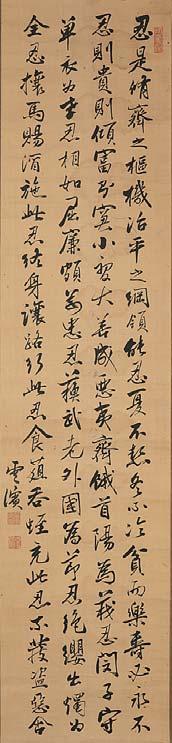 忍是脩齊之樞機治平之綱領能忍夏不熱冬不冷貧而樂壽必永不
忍則貴則傾富則窶小變大善成惡夷齊餓首陽為義忍閔子守
單衣為孝忍相如屈廉頗為忠忍蘇武老外國為節忍絕纓出燭為
全忍攘馬賜酒施此忍終身讓路行此忍食葅吞蛭充此忍不發盜惡舍
雲濱